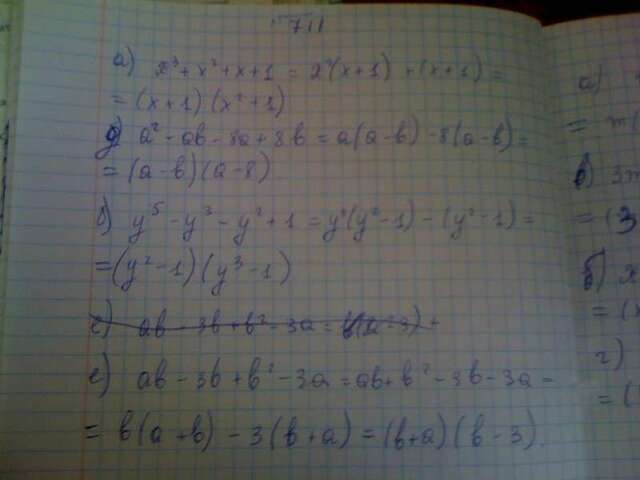 711
а) x³ + x² + x + 1 = x²(x + 1) + (x + 1) =
= (x + 1)(x² + 1)
д) a² - ab - 8a + 8b = a(a - b) - 8(a - b) =
= (a - b)(a - 8)
б) y⁵ - y³ - y² + 1 = y³(y² - 1) - (y² - 1) =
= (y² - 1)(y³ - 1)
е) ab - 3b + b² - 3a = b(a - 3) +
е) ab - 3b + b² - 3a = ab + b² - 3b - 3a =
= b(a + b) - 3(b + a) = (b + a)(b - 3).
а)
= m(
в) 3m
= (3
б) x
= (x
г)
= (